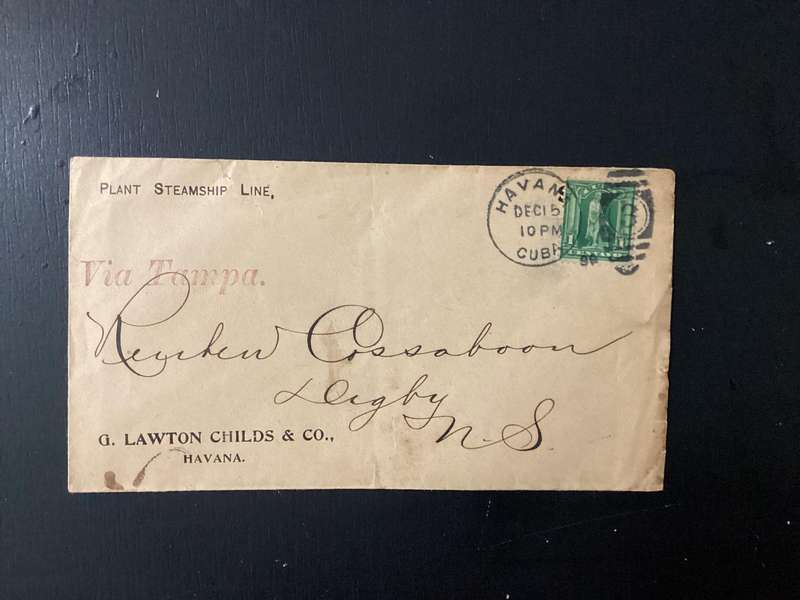 PLANT STEAMSHIP LINE,
HAVANA
DEC 15
10 PM
CUBA
99
1
Via Tampa.
Reuben Cossaboom
Digby
N. S.
G. LAWTON CHILDS & CO.,
HAVANA.